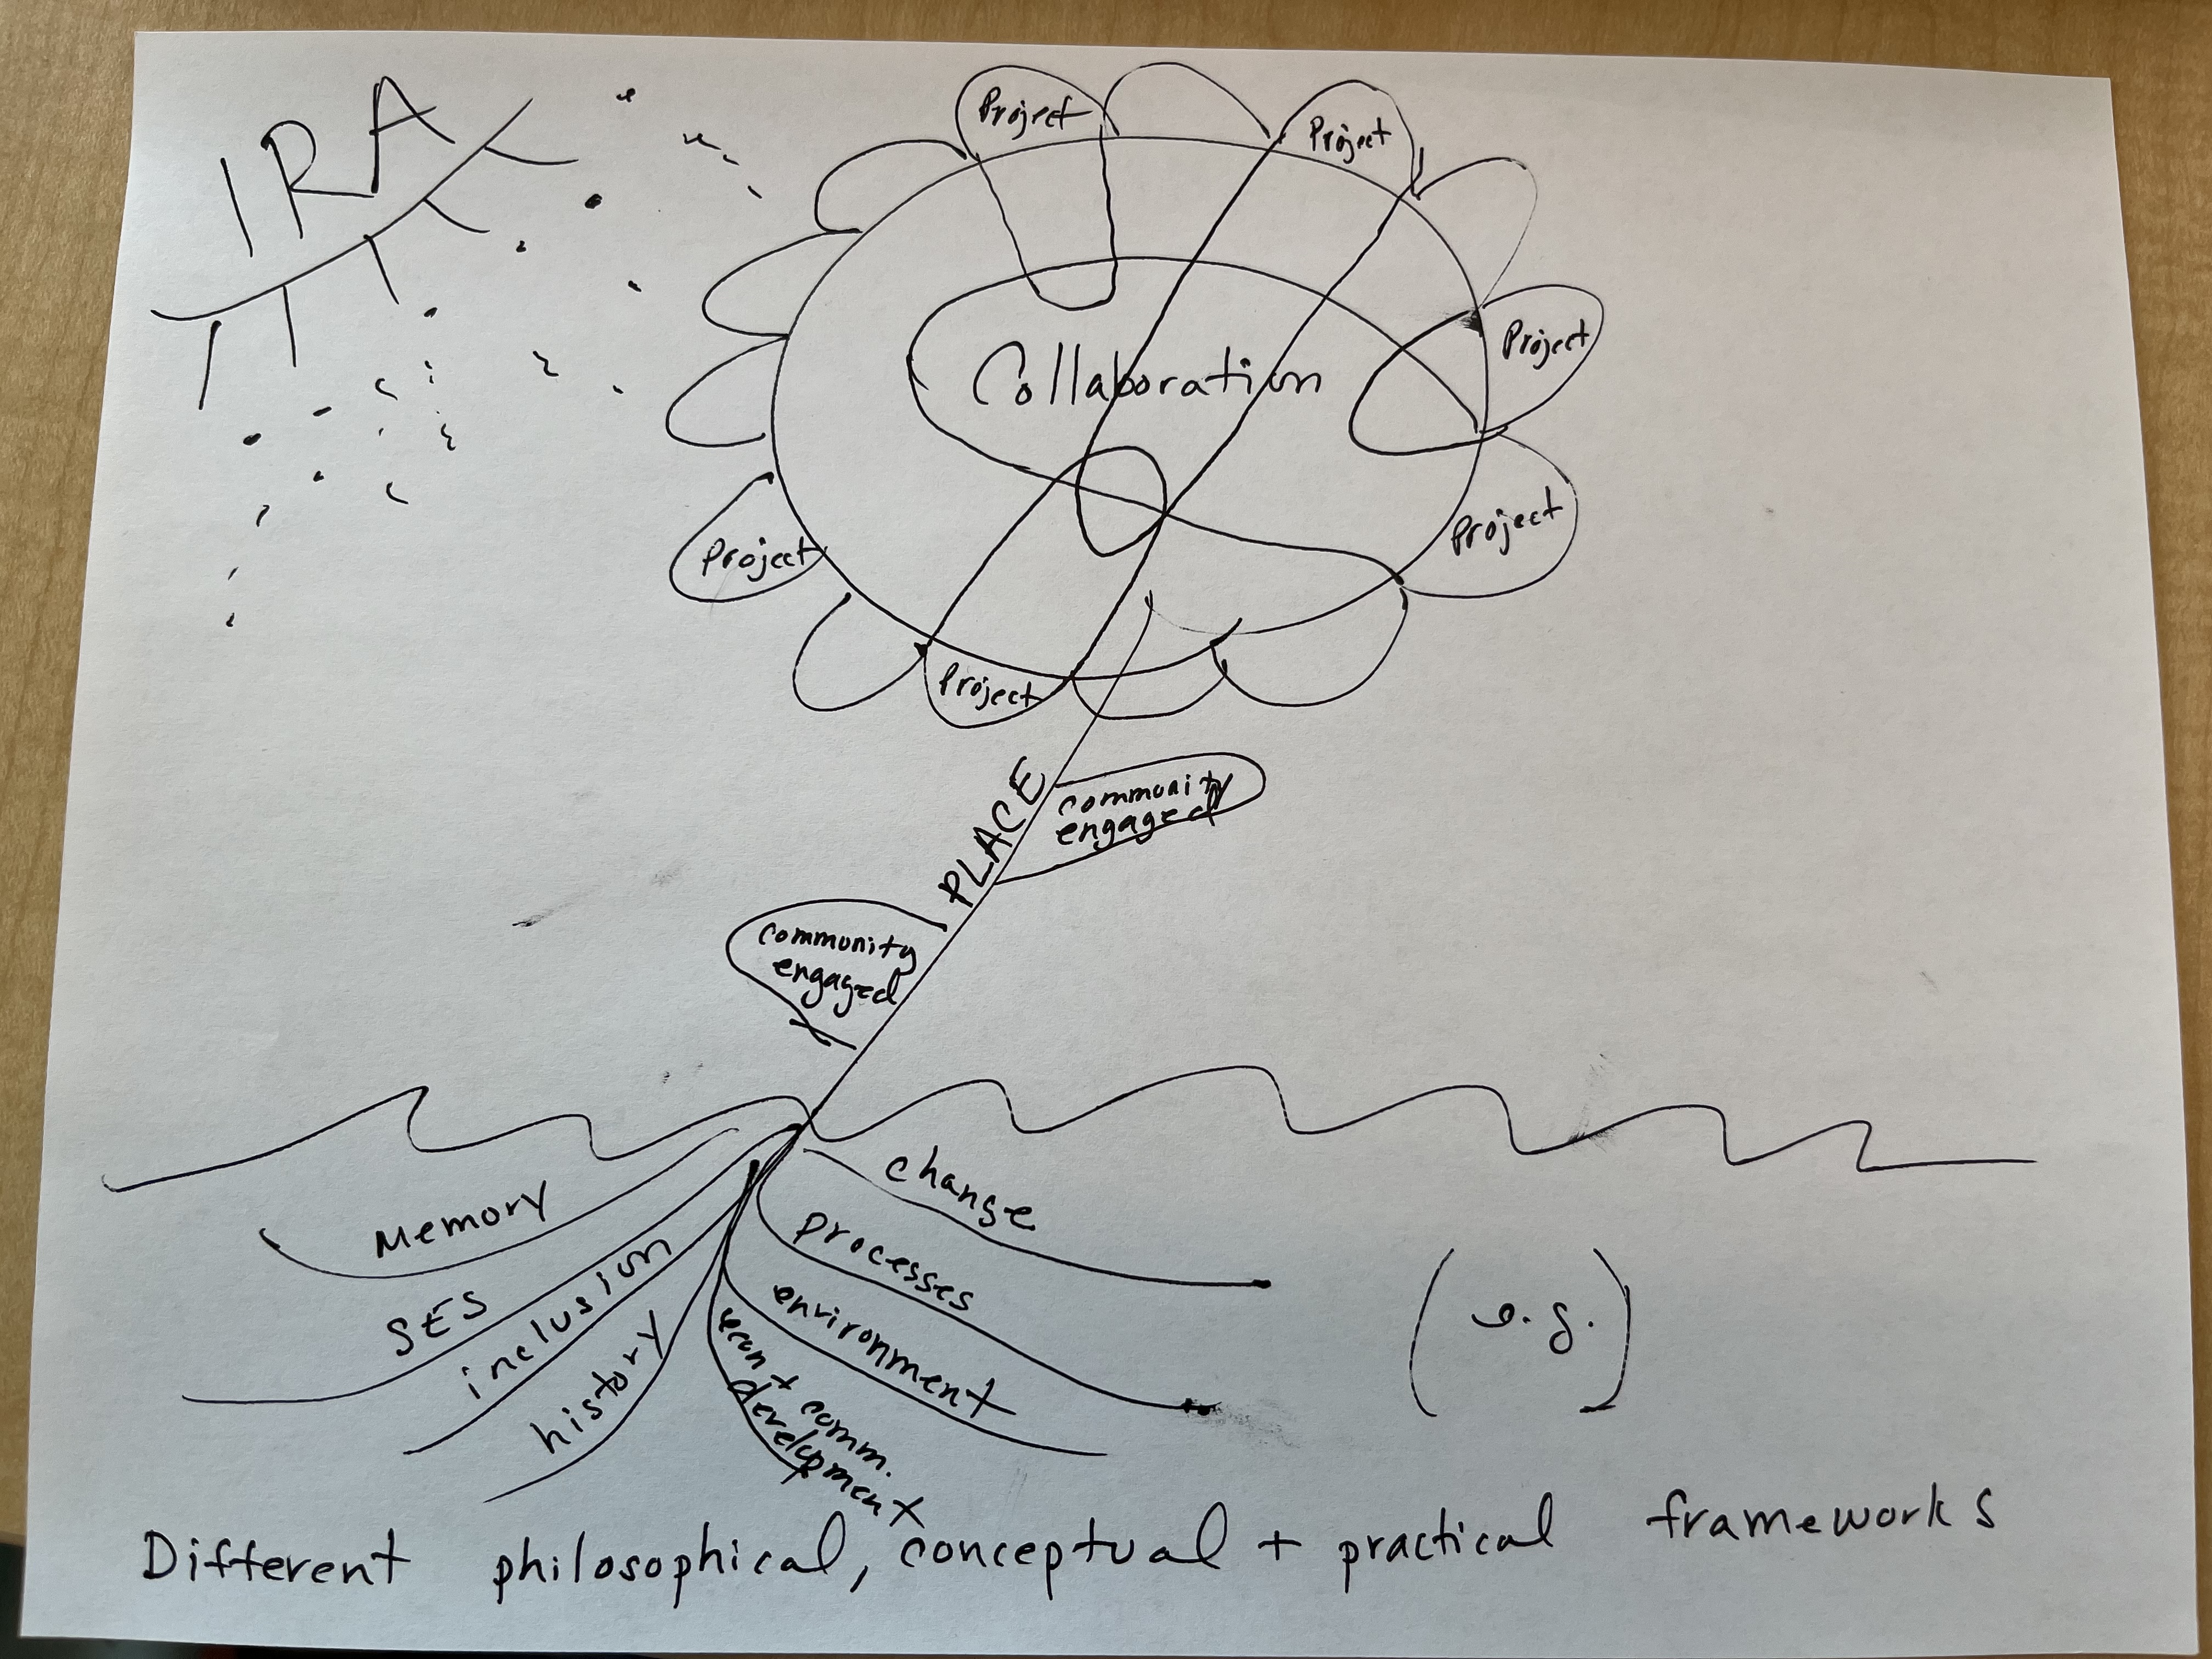 IRA
Project
Project
Project
Project
Project
Project
Collaboration
PLACE
community
engaged
community
engaged
Memory
SES
inclusion
history
econ + comm.
development
environment
processes
change
Different philosophical, conceptual + practical frameworks